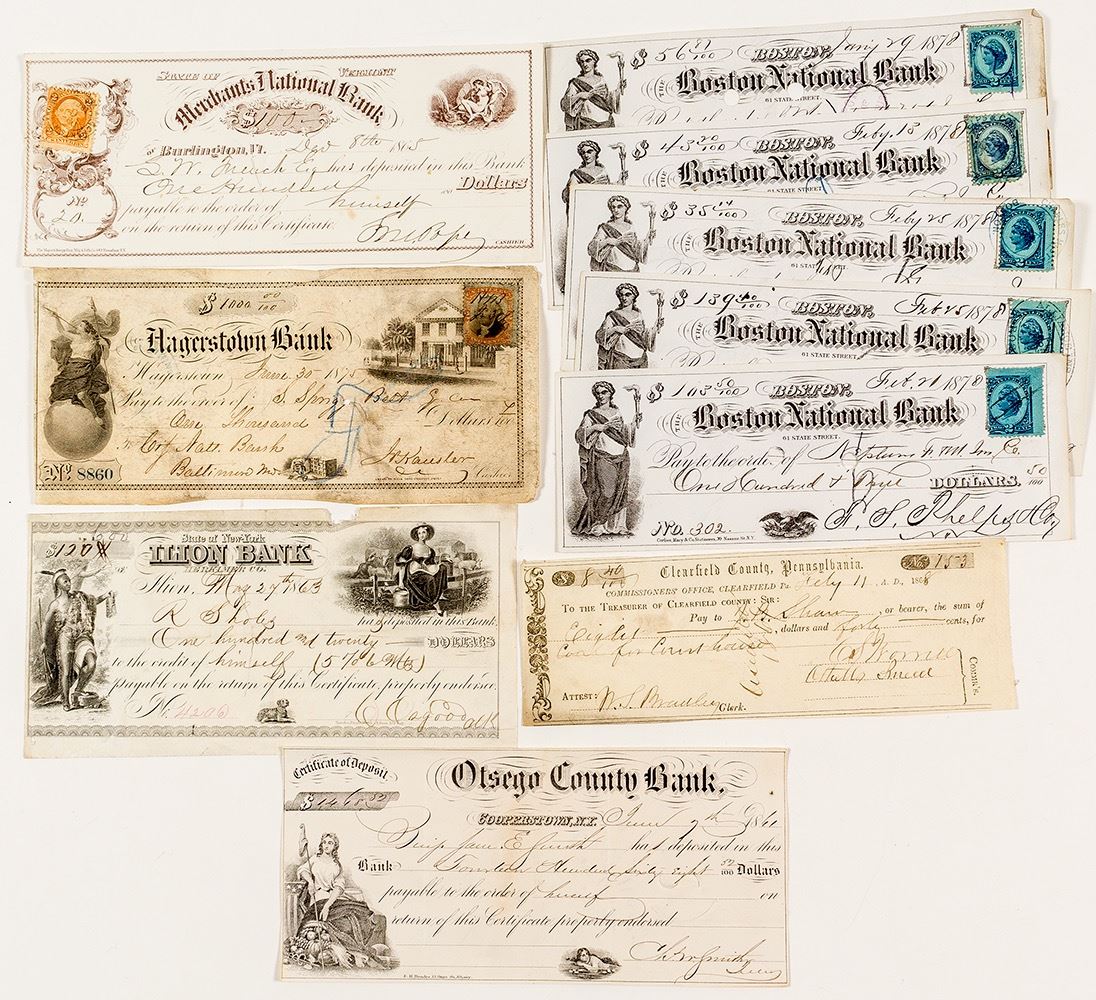 STATE OF VERMONT
Merchants National Bank
$100
Burlington, Vt. Dec 8th 1865
has deposited in this Bank
One Hundred Dollars
payable to the order of himself
No. 20.
on the return of this Certificate.
CASHIER
$ 1000 00/100
Hagerstown Bank
Hagerstown June 30 1875
Pay to the order of
One Thousand Dollars
Baltimore Md.
No. 8860
Cashier
State of New-York
$120
ILION BANK
HERKIMER CO.
Ilion, May 27th 1863
has deposited in this Bank.
One hundred and twenty DOLLARS
to the credit of himself
payable on the return of this Certificate, properly endorsed.
No. 4206
$ 56 BOSTON, Jany 29 1878
THE Boston National Bank
61 STATE STREET.
$ 45 20/100 BOSTON, Feby 13 1878
THE Boston National Bank
61 STATE STREET
$ 35 BOSTON, Feby 25 1878
THE Boston National Bank
61 STATE STREET.
$ 139 40/100 BOSTON, Feb 25 1878
THE Boston National Bank
61 STATE STREET.
$ 103 50/100 BOSTON, Feb. 21 1878
THE Boston National Bank
61 STATE STREET.
Pay to the order of Neptune F & M Ins. Co.
One Hundred & Three DOLLARS. 50/100
No. 302. F. S. Phelps & Co
Corlies, Macy & Co. Stationers, 39 Nassau St. N.Y.
$ 8 40/100 Clearfield County, Pennsylvania. No. 153
COMMISSIONERS' OFFICE, CLEARFIELD Pa. July 11 A.D., 1868
TO THE TREASURER OF CLEARFIELD COUNTY: SIR:
Pay to Shaw, or bearer, the sum of
Eight, dollars and forty cents, for
Coal for Court house
COMM'R'S.
ATTEST: Clerk.
Certificate of Deposit
Otsego County Bank.
$1468 50
COOPERSTOWN, N.Y. June 7th 1861
has deposited in this
Bank Fourteen Hundred Sixty Eight 50/100 Dollars
payable to the order of herself on
return of this Certificate properly endorsed